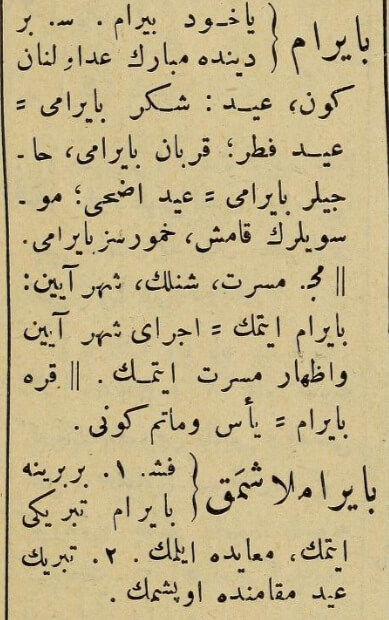 بايرام { ياخود بيرام . س. بر
دينده مبارك عد اولنان
كون، عيد : شكر بايرامى =
عيد فطر؛ قربان بايرامى، حا-
جيلر بايرامى = عيد اضحى؛ مو-
سويلرك قامش، خمورسز بايرامى.
|| مج. مسرت، شنلك، شهر آيين:
بايرام ايتمك = اجراى شهر آيين
واظهار مسرت ايتمك . || قره
بايرام = يأس وماتم كونى.
بايرام لاشمَق { فش. ١. بربرينه
بايرام تبريكى
ايتمك، معايده ايلمك. ٢. تبريك
عيد مقامنده اوپشمك .